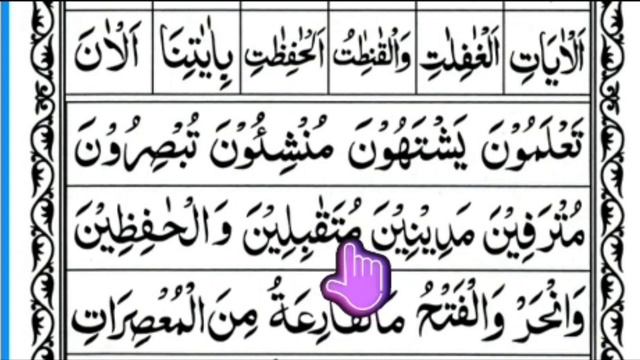 اَلْاٰيَاتِ اَلْغٰفِلٰتِ وَالْقٰنِطٰتُ اَلْحٰفِظٰتِ بِاٰيٰتِنَا اَلْاٰنَ
تَعْلَمُوْنَ يَشْتَهُوْنَ مُنْشِئُوْنَ تُبْصِرُوْنَ
مُتْرَفِيْنَ مَدِيْنِيْنَ مُتَقٰبِلِيْنَ وَالْحٰفِظِيْنَ
وَانْحَرْ وَالْفَتْحُ مَالْقَارِعَةُ مِنَ الْمُعْصِرَاتِ